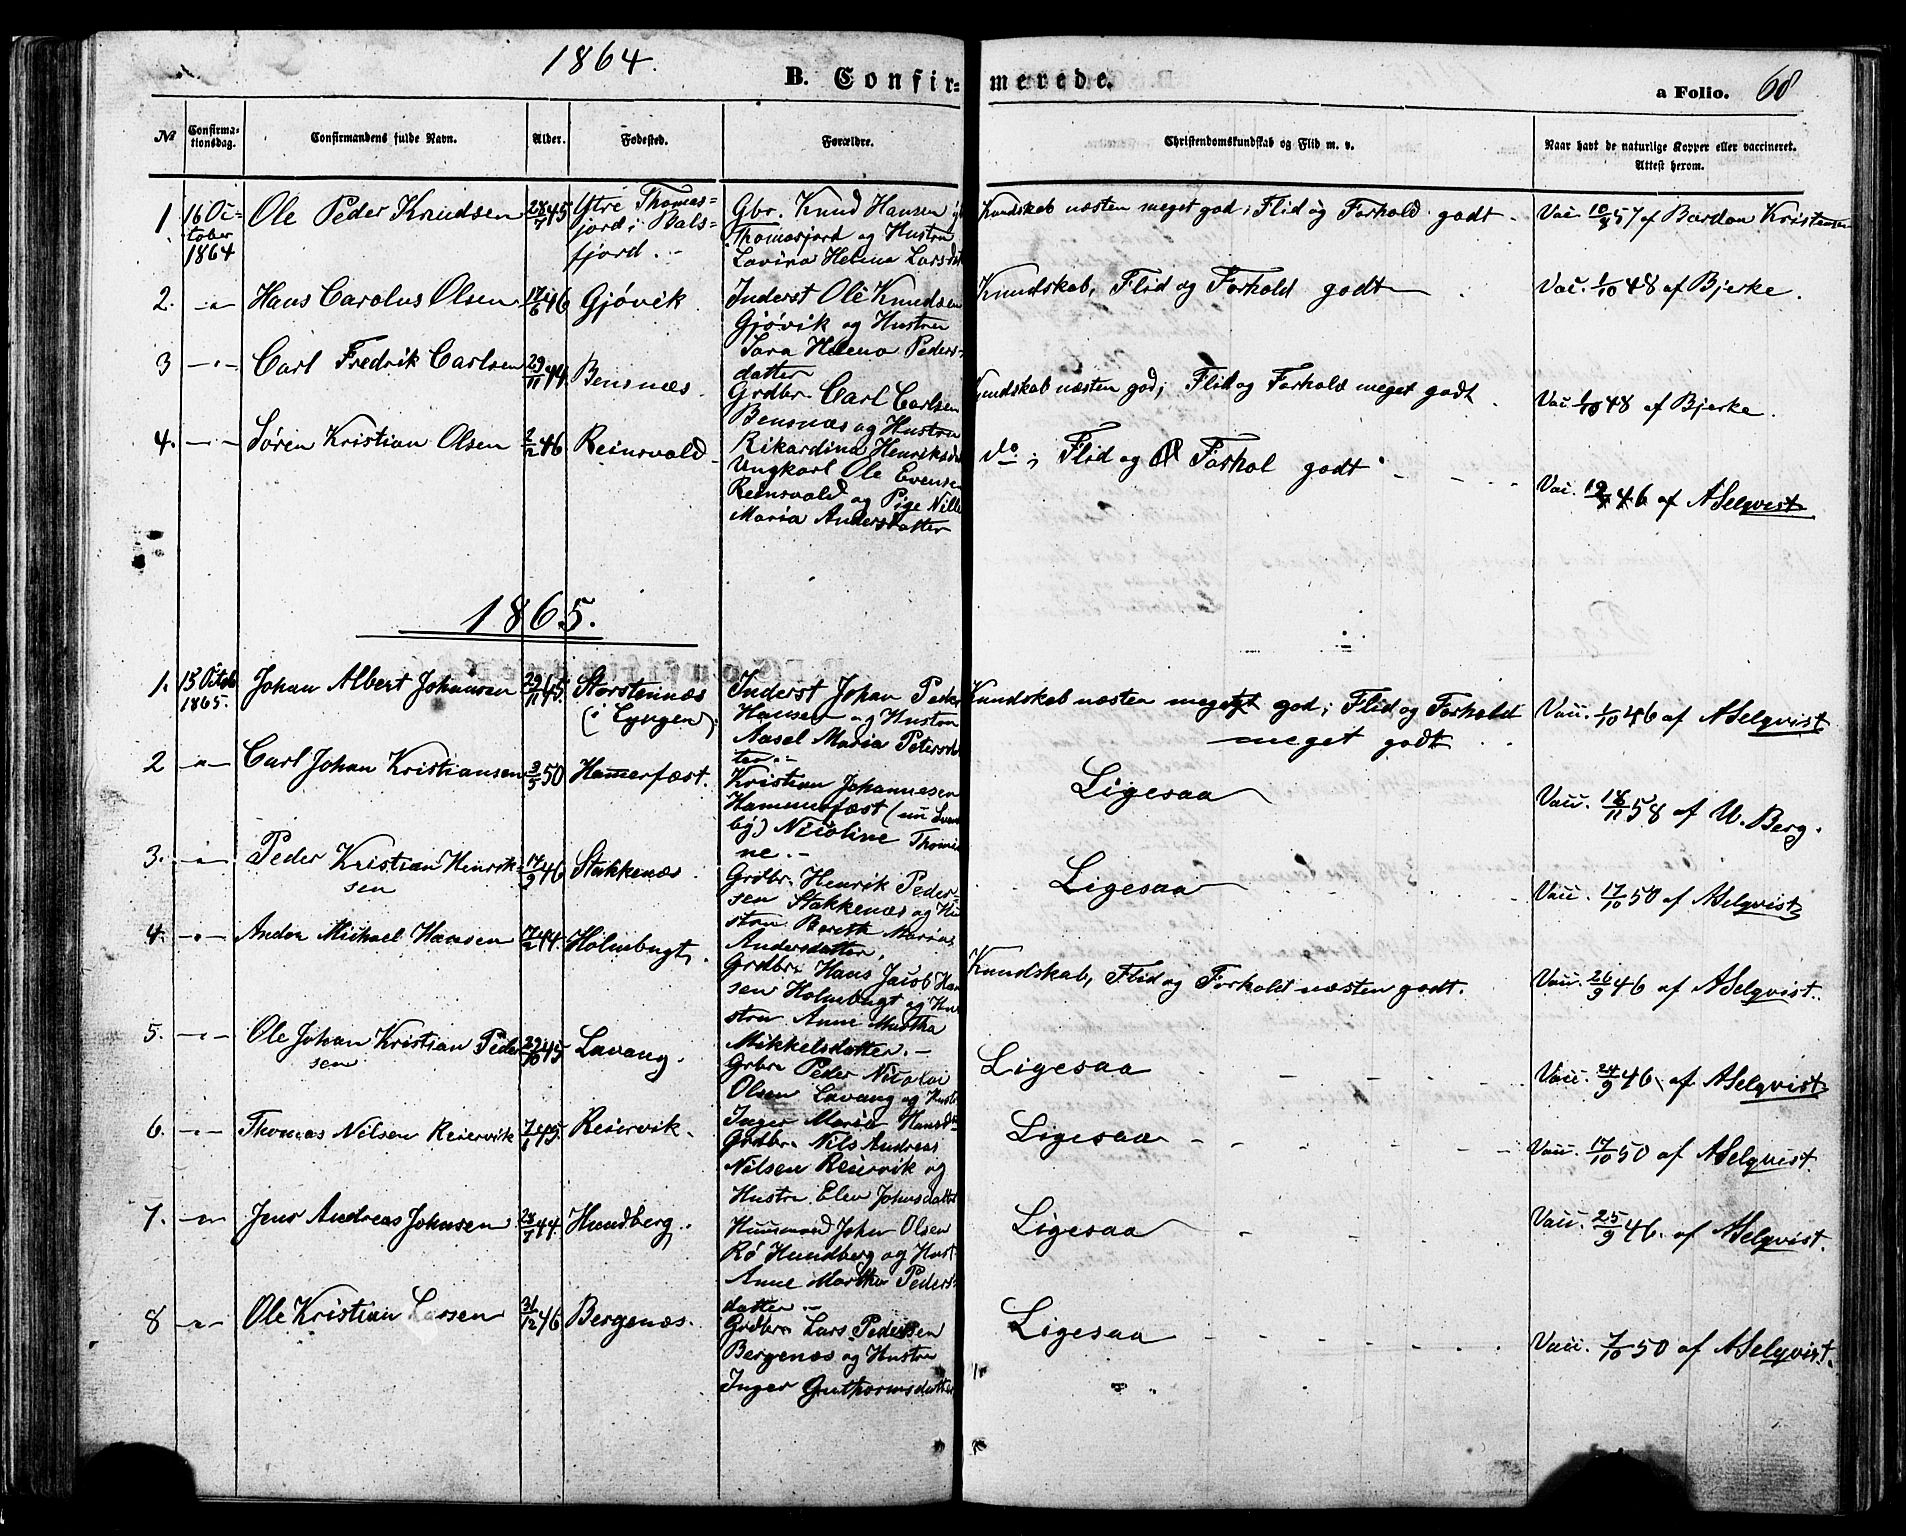 1864.
B. Confirmerede.
a Folio. 68
No Confirmationsdag. Confirmandens fulde Navn. Alder. Fødested. Forældre. Christendomskundskab og Flid m. v. Naar havt de naturlige Kopper eller vaccineret. Attest herom.
1 16 October 1864 Ole Peder Knudsen 28/7 45 Ytre Thomasjord i Balsfjord.
Gbr. Knud Hansen
Thomasjord og Hustru
Lavina Helena Larsdt
Kundskab næsten meget god; Flid og Forhold godt
Vac. 10/8 57 af Bardon Kristensen
2. -"- Hans Carolus Olsen 17/6 46 Gjövik
Inderst Ole Knudsen
Gjövik og Hustru
Sara Helena Peders-
datter
Kundskab, Flid og Forhold godt
Vac. 1/10 48 af Bjerke.
3 -"- Carl Fredrik Carlsen 29/11 44 Bensnæs.
Grdbr. Carl Carlsen
Bensnæs og Hustru
Rikardina Henriksdt
Kundskab næsten god; Flid og Forhold meget godt
Vac. 1/10 48 af Bjerke.
4. -"- Sören Kristian Olsen 2/2 46 Reinsvold
Ungkarl Ole Evensen
Reinsvold og Pige Nille
Maria Andersdatter
do; Flid og Forhol godt
Vac. 46 af ASelqvist
1865.
1. 15 Octob 1865. Johan Albert Johansen 29/11 45. Storstennæs
(i Lyngen).
Inderst Johan Peder
Hansen og Hustru
Aasel Maria Petersdat
ter.-
Kundskab næsten meget god; Flid og Forhold
meget godt
Vacc. 1/10 46 af ASelqvist
2 -"- Carl Johan Kristiansen 3/5 50 Hamerfæst.
Kristian Johannesen
Hammerfæst (nu Svens
by) Nicoline Thomi
ne.-
Ligesaa
Vacc. 18/11 58 af U. Berg.
3. -"- Peder Kristian Henrik-
sen 17/9 46 Stakkenæs
Grdbr. Henrik Peder-
sen Stakkenæs og Hu
stru Bereth Maria
Andersdatter,
Ligesaa
Vacc. 17/10 50 af ASelqvist
4. -"- Andor Mickael Hansen 17/2 44. Holmbugt.
Grdbr. Hans Jacob Han
sen Holmbugt og Hu
stru Anne Martha
Mikkelsdatter.-
Kundskab, Flid og Forhold næsten godt.
Vacc. 26/9 46 af ASelqvist.
5. -"- Ole Johan Kristian Peder
sen 29/10 45 Lavang.
Grbr. Peder Nicolai
Olsen Lavang og Hust
Inger Maria Hansdt
Ligesaa
Vacc. 24/9 46 af ASelqvist
6. -"- Thomas Nilsen Reiervik 7/1 45. Reiervik.
Grdbr. Nils Andreas
Nilsen Reiervik og
Hustru Elen Johnsdatt
Ligesaa
Vacc. 17/10 50 af ASelqvist.
7. -"- Jens Andreas Johnsen 28/7 44. Hundberg.
Huusmand John Olsen
Rø Hundberg og Hust
Anne Martha Peders
datter.-
Ligesaa
Vacc. 25/9 46. af ASelqvist.
8 -"- Ole Kristian Larsen 31/12 46 Bergenæs.
Grdbr. Lars Pedersen
Bergenæs og Hustru
Inger Guthormsdatter
Ligesaa
Vacc. 7/10 50 af ASelqvist.